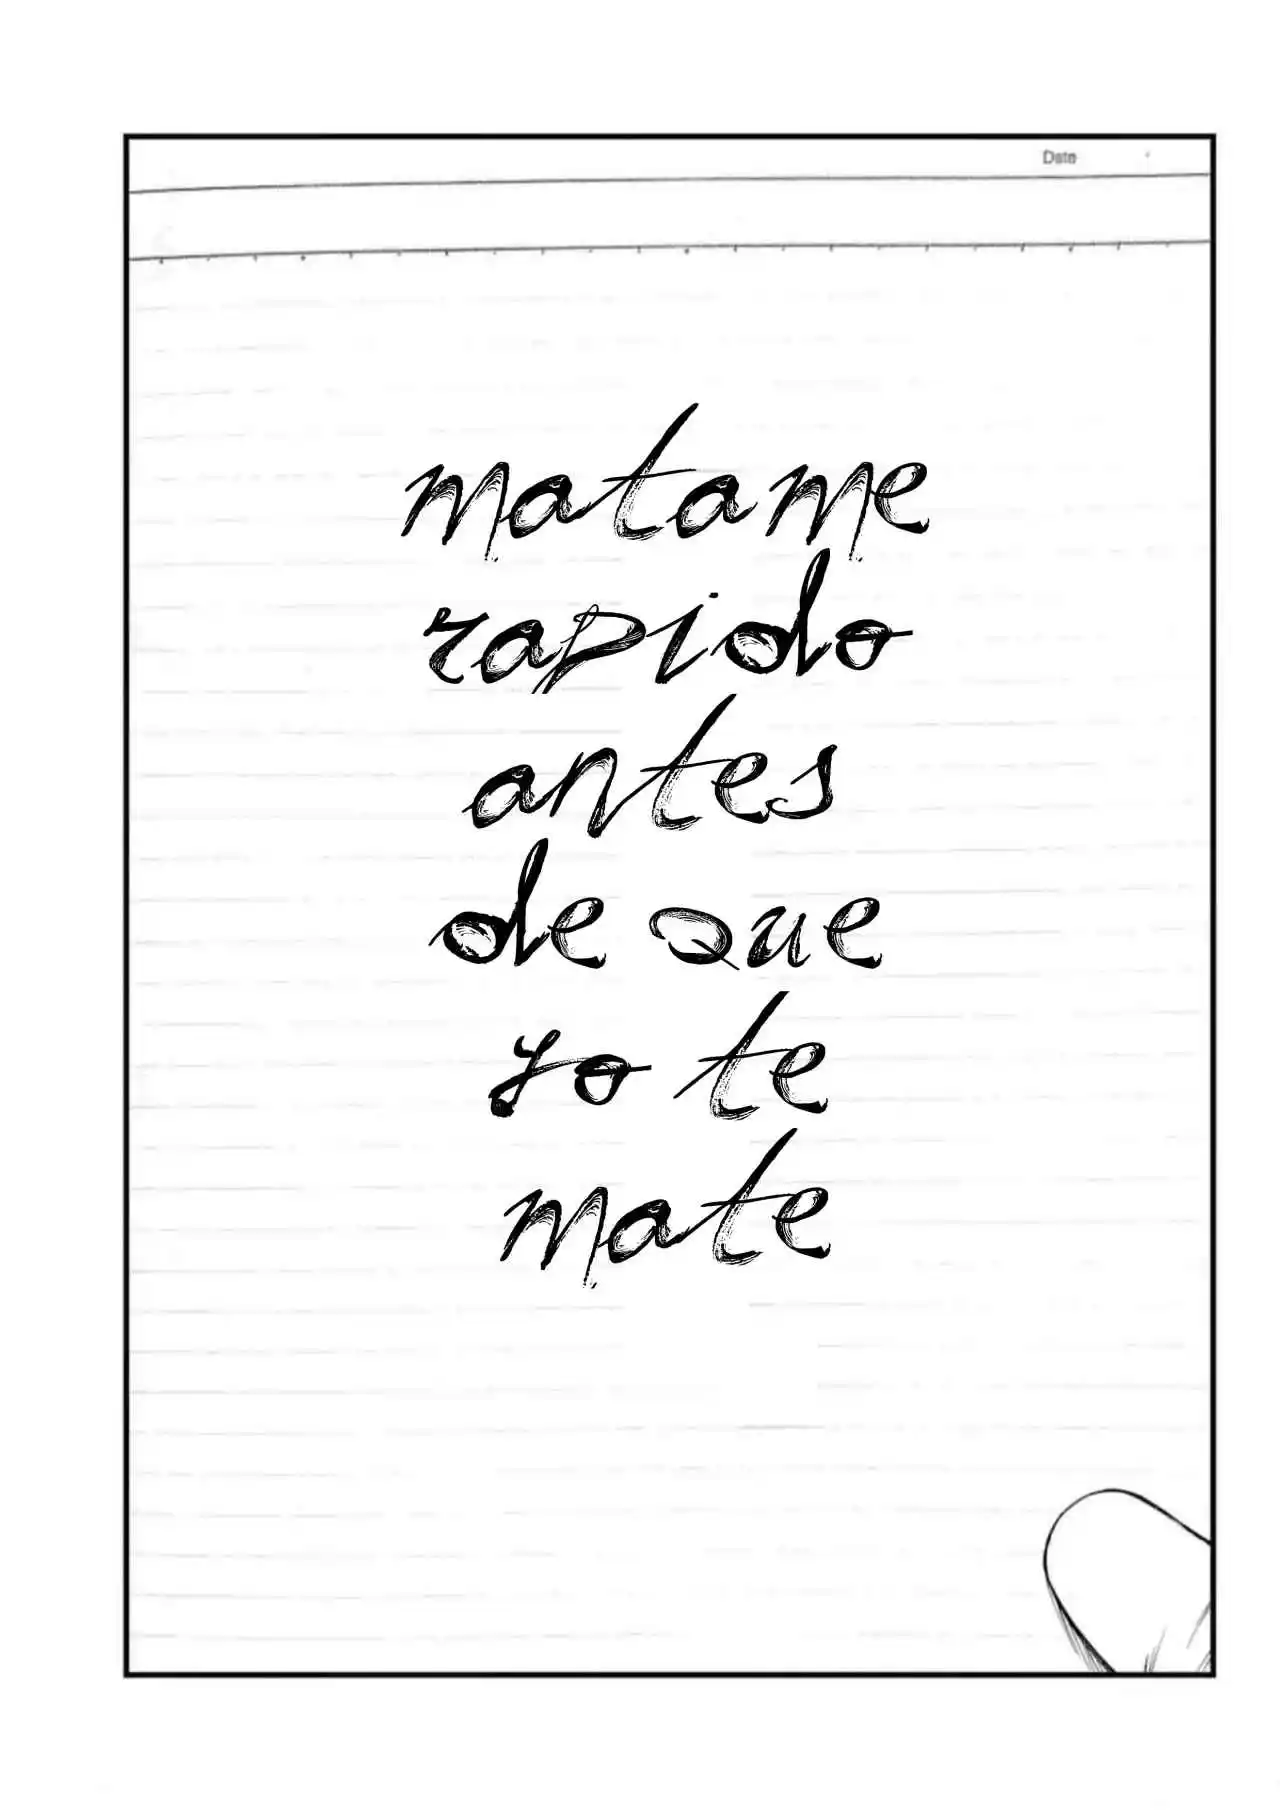 Date
matame
rapido
antes
de que
yo te
mate